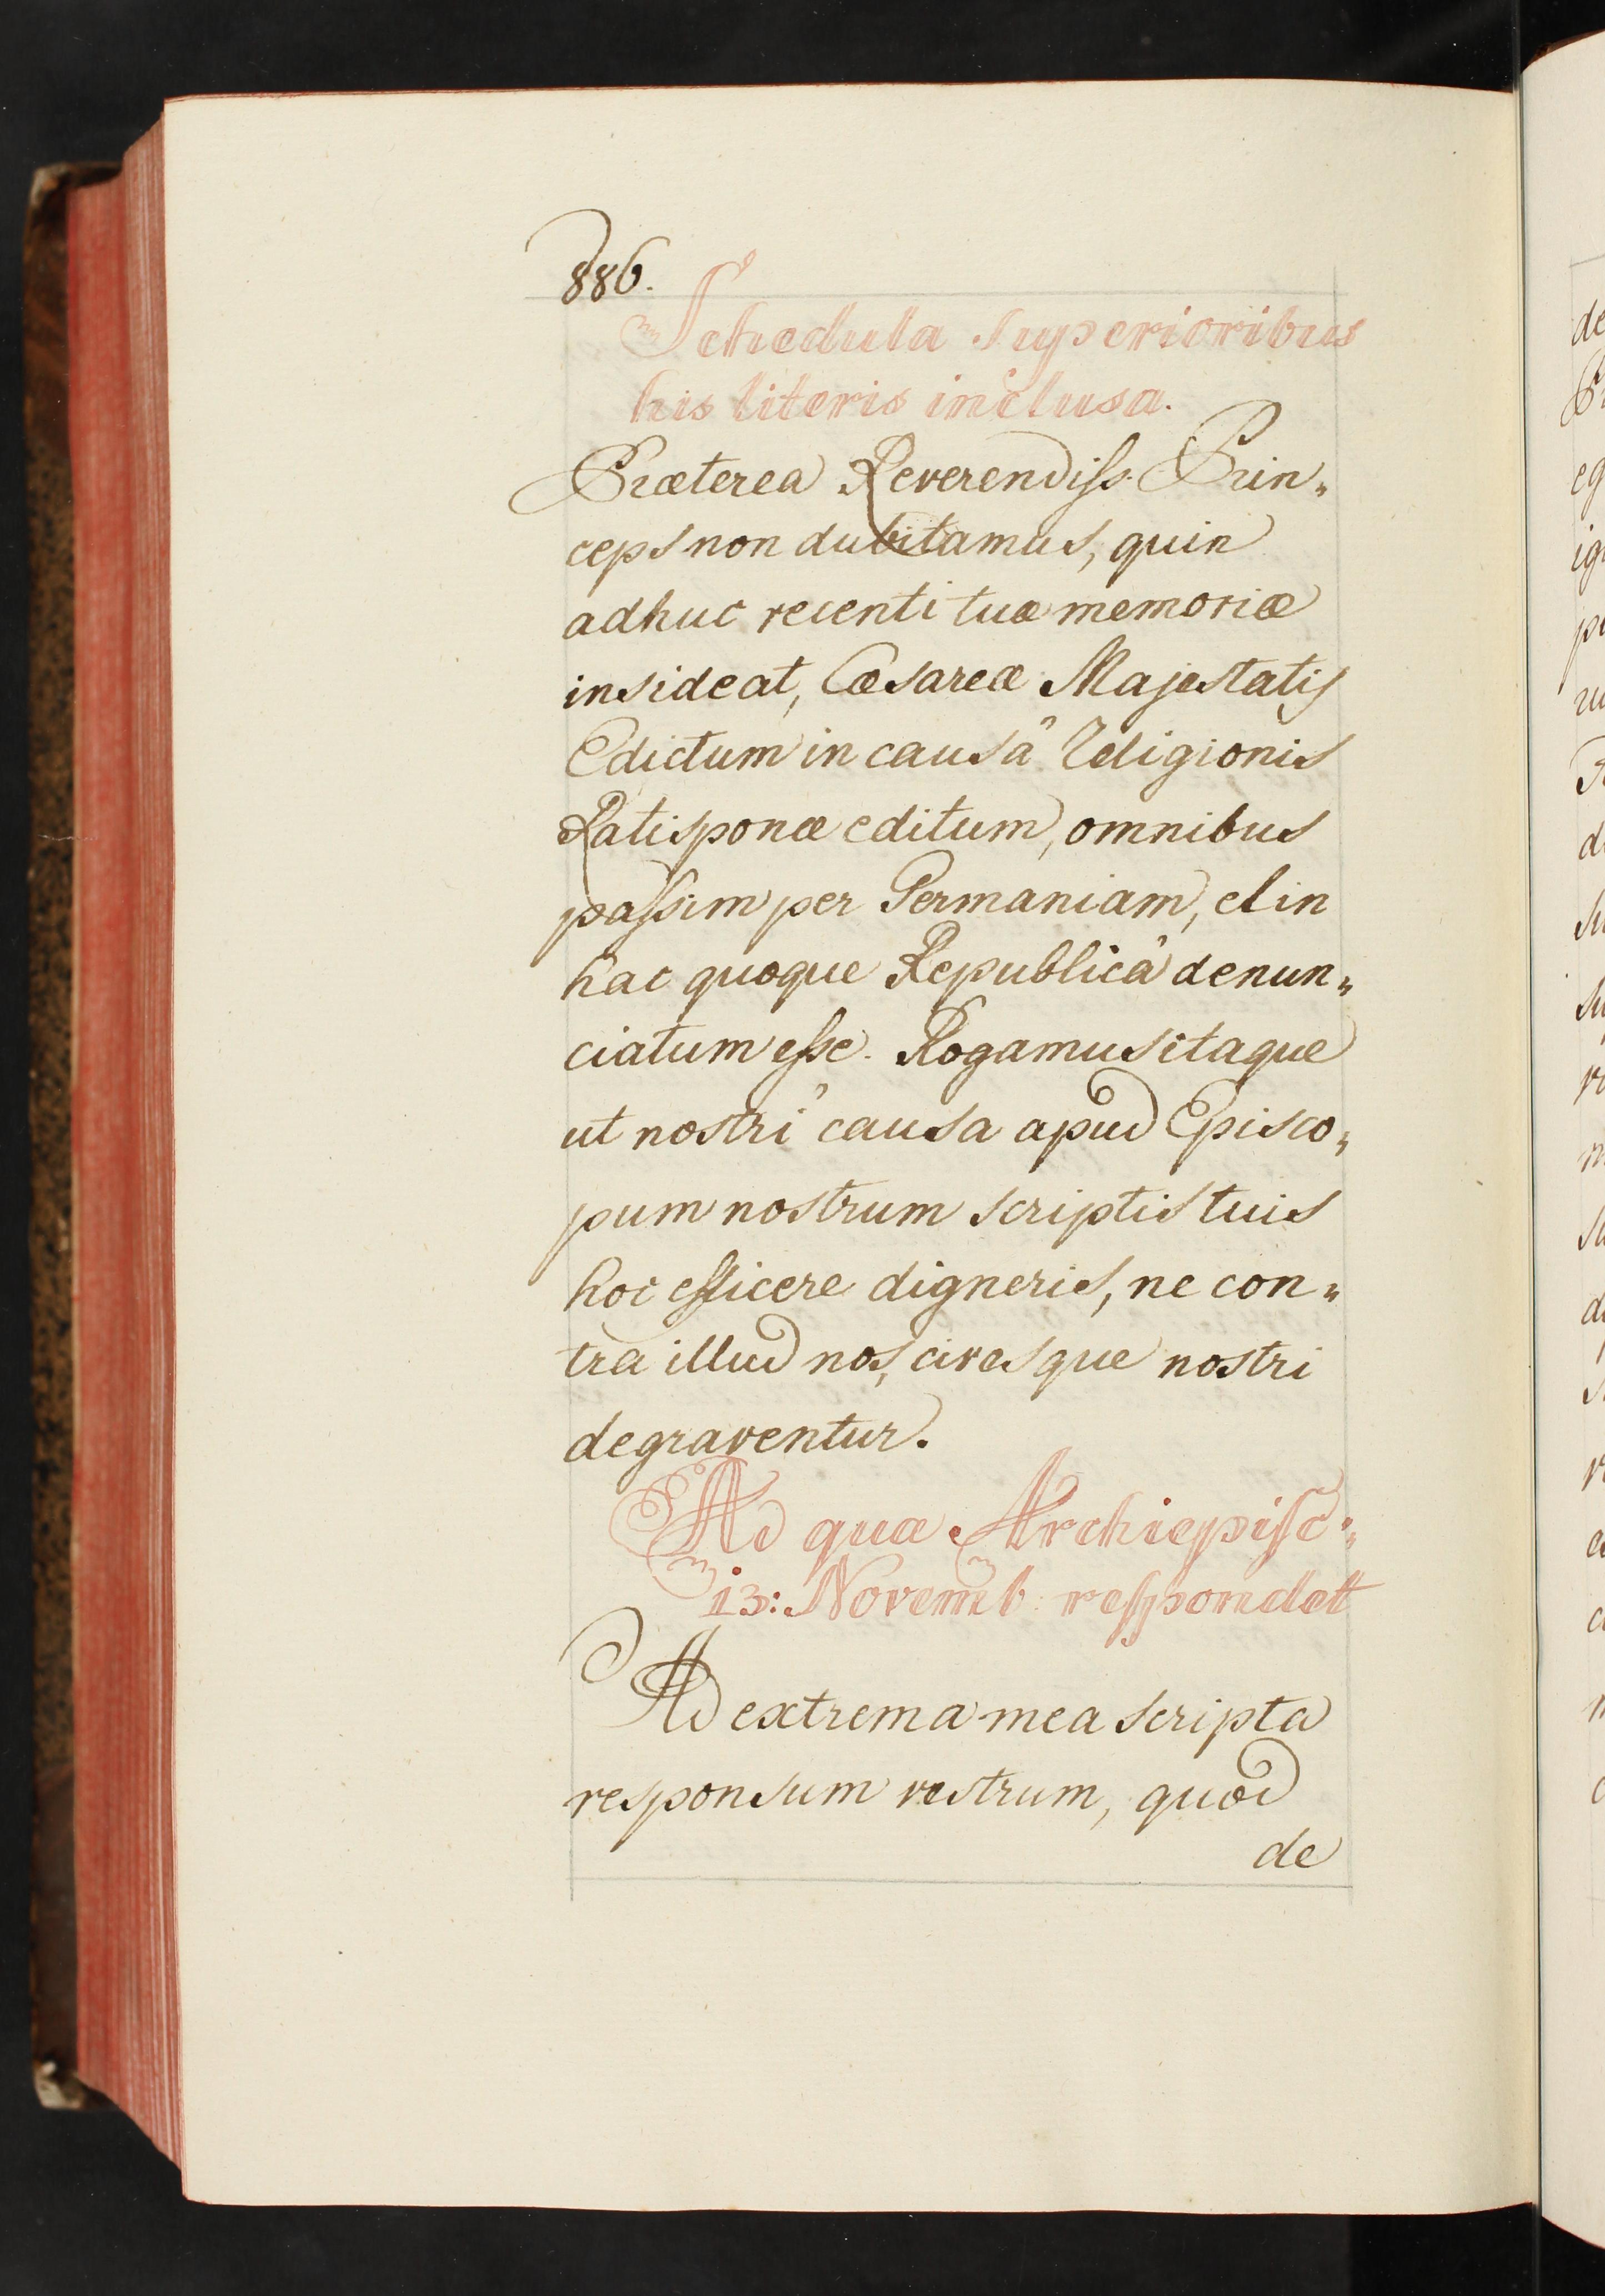 886.
Schedula superioribus
his literis inclusa.
Præterea Reverendiss. Prin„
ceps non dubitamus, quin
adhuc recenti tuæ memoriæ
insideat, Cæsareæ Majestatis
Edictum in causâ Religionis
Ratisponæ editum, omnibus
passim per Germaniam, et in
hac quoque Republicâ denun„
ciatum esse. Rogamus itaque
ut nostri causa apud Episco„
pum nostrum scriptis tuis
hoc efficere digneris, ne con„
tra illud nos, civesque nostri
degraventur.
Ad quæ Archiepisc„
13: Novemb: respondet
Ad extrema mea scripta
responsum vestrum, quod
de